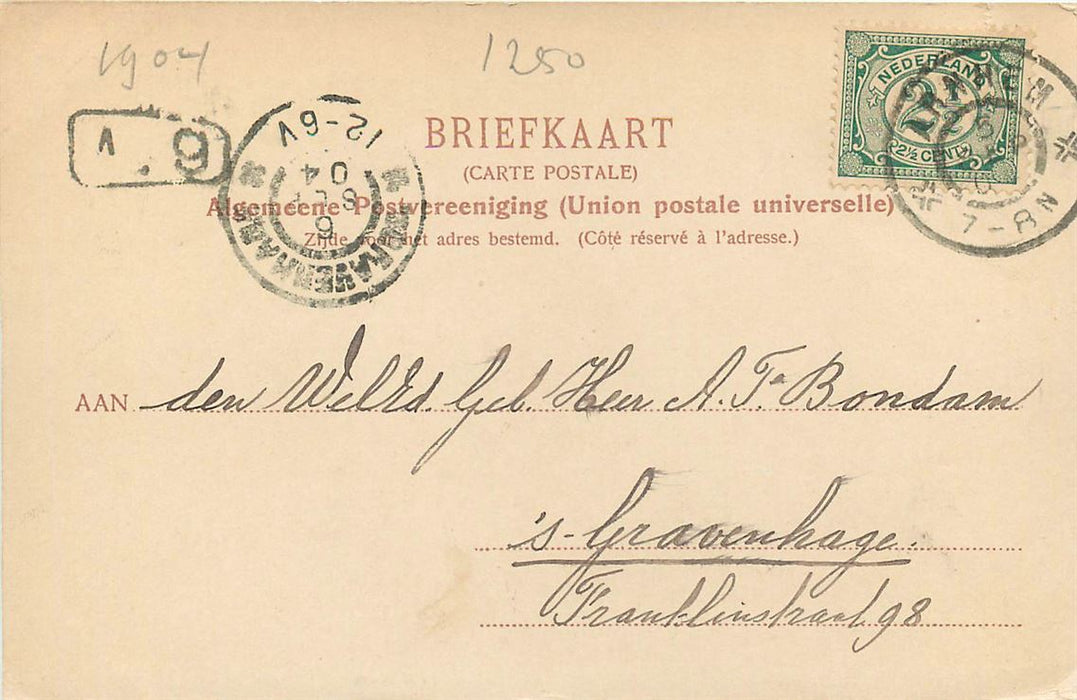 1904
1250
6
V
12-6V
8
6
04
'S GRAVENHAGE
NEDERLAND
2½
2½ CENT
7-8N
BRIEFKAART
(CARTE POSTALE)
Algemeene Postvereeniging (Union postale universelle)
Zijde voor het adres bestemd. (Côté réservé à l'adresse.)
AAN den WelEd. Geb. Heer A. Fa Bondam
's-Gravenhage.
Franklinstraat 98